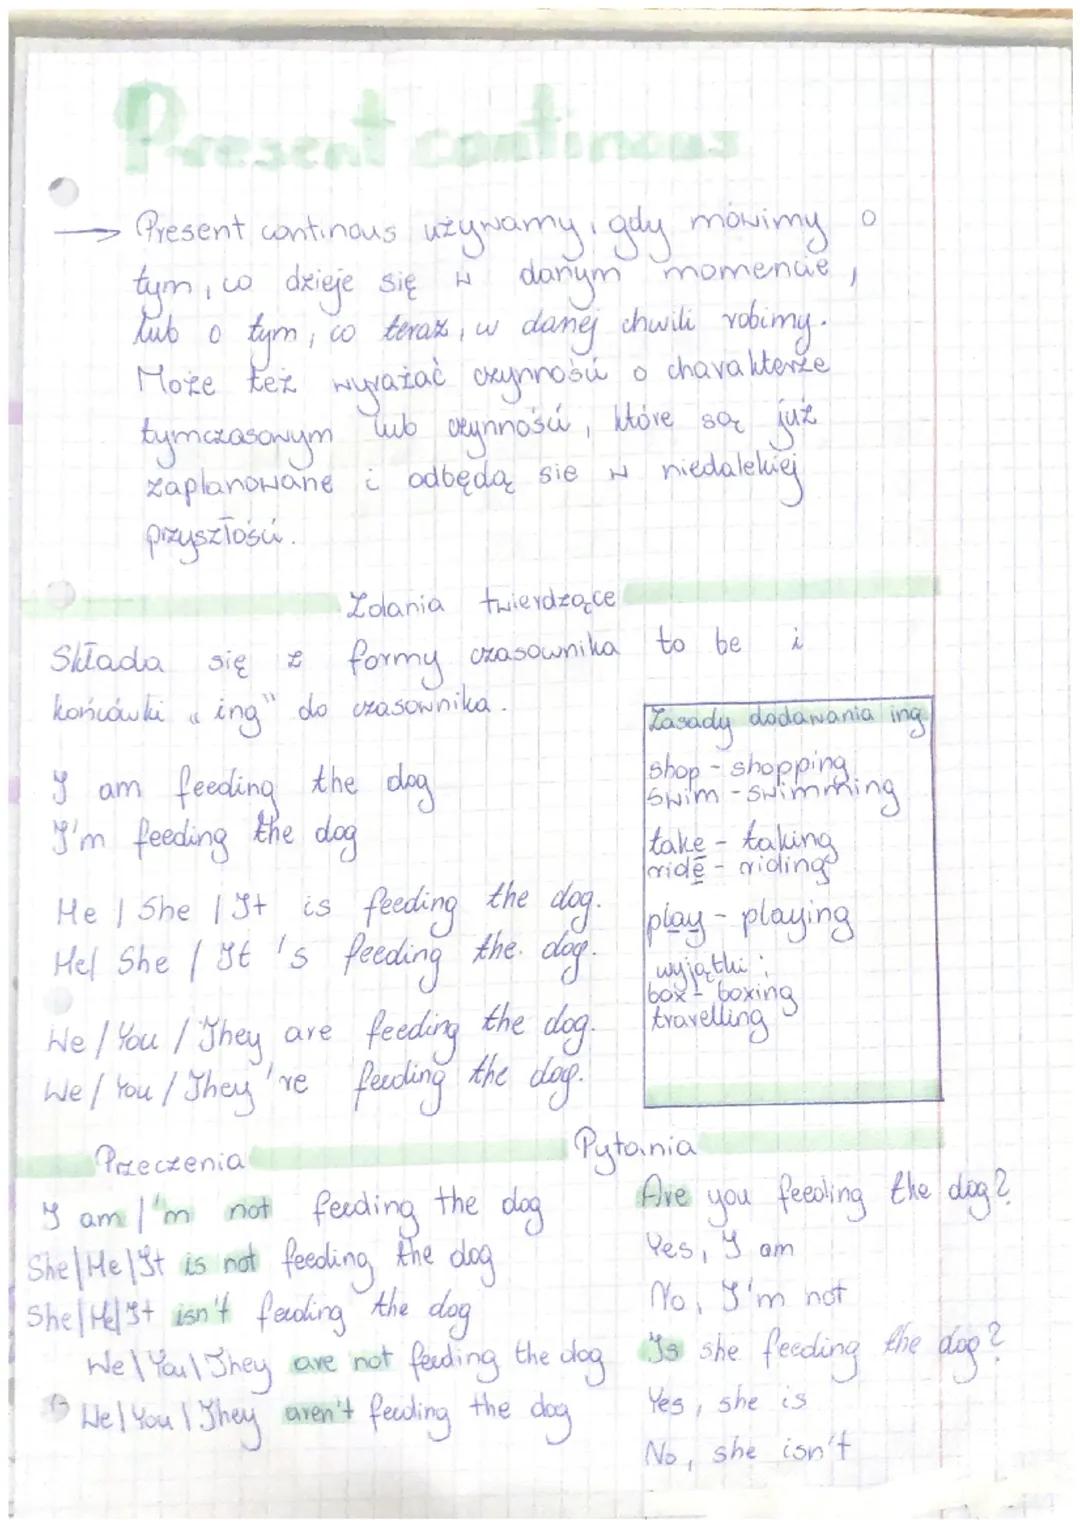 Present continous
→ Present continous używamy, gdy mówimy o
tym, co dzieje się w danym momencie,
lub o tym, co teraz, w danej chwili robimy.
Może też wyrażać czynności o charakterze
tymczasowym lub czynności, które są już
zaplanowane i odbędą sie w niedalekiej
przyszłości.
Zdania twierdzące
Składa się z formy czasownika to be i
końcówki „ing" do czasownika.
I am feeding the dog
I'm feeding the dog
He / She / It is feeding the dog.
He/ She / It 's feeding the dog.
We / You / They are feeding the dog.
We / You / They 're feeding the dog.
Zasady dodawania ing
shop - shopping
swim - swimming
take - taking
ride - riding
play - playing
wyjątki:
box - boxing
travelling
Przeczenia
I am / 'm not feeding the dog
She/He/It is not feeding the dog
She/He/It isn't feeding the dog
We \ You \ They are not feeding the dog
We / You \ They aren't feeding the dog
Pytania
Are you feeding the dog?
Yes, I am
No, I'm not
Is she feeding the dog?
Yes, she is
No, she isn't